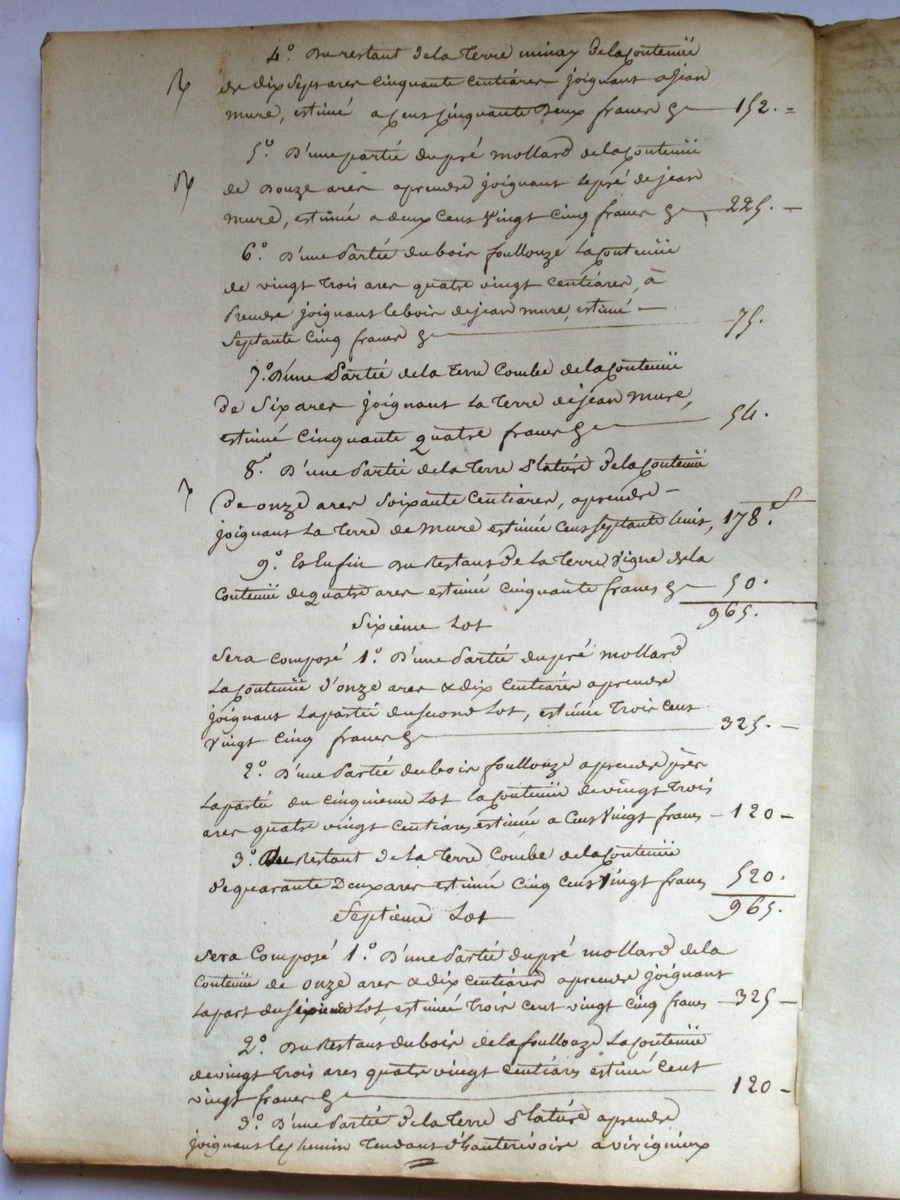 4.° Du restant de la terre minay de la Contenüe
de dix sept ares cinquante centiares joignant a jean
mure, estimé a Cent Cinquante Deux francs Cy — 152. =
5.° D'une partié du pré mollard de la Contenüe
de Douze ares aprendre joignant le pré de jean
mure, estimé a deux Cent Vingt Cinq francs Cy — 225. —
6.° D'une Partié du bois foullouze La Contenüe
de vingt trois ares quatre vingt Centiares, à
Prendre joignant le bois de jean mure, estimé —
Septante Cinq francs Cy — 75.
7.° D'une Partié de la terre Combe de la Contenüe
De Six ares joignant La Terre de jean Mure,
estimé Cinquante quatre francs Cy — 54.
8.° D'une Partié de la Terre Slature de la Contenüe
De onze ares Soixante Centiares, aprendre —
joignant La Terre de Mure estimée Cent Septante huit, 178.f
9.° Et Enfin Du Restant De La Terre Vigne de la
Contenüe de quatre ares estimé Cinquante francs Cy — 50.
965.
Sixième Lot
Sera Composé 1.° D'une Partié du pré mollard
La Contenüe d'onze ares & dix Centiares aprendre
joignant La partié du second Lot, estimée Trois Cent
Vingt Cinq francs Cy — 325. —
2.° D'une Partié du bois foullouze aprendre près
La partié du Cinquième Lot la Contenüe de vingt Trois
ares quatre vingt Centiares estimée a Cent Vingt francs — 120 —
3.° Du Restant de La Terre Combe de la Contenüe
de quarante Deux ares estimée Cinq Cent Vingt francs 520.
965.
Septième Lot
Sera Composé 1.° D'une Partié du pré mollard de la
Contenüe de onze ares & dix Centiares aprendre joignant
La part du Sixième Lot, estimée Trois Cent vingt Cinq francs — 325 —
2.° Du Restant du bois de la foullouze La Contenüe
de vingt Trois ares quatre vingt Centiares estimé Cent
vingt francs Cy — 120 —
3.° D'une Partié de la Terre Slature aprendre
joignant le chemin Tendant d'hauterivoire a virigneux